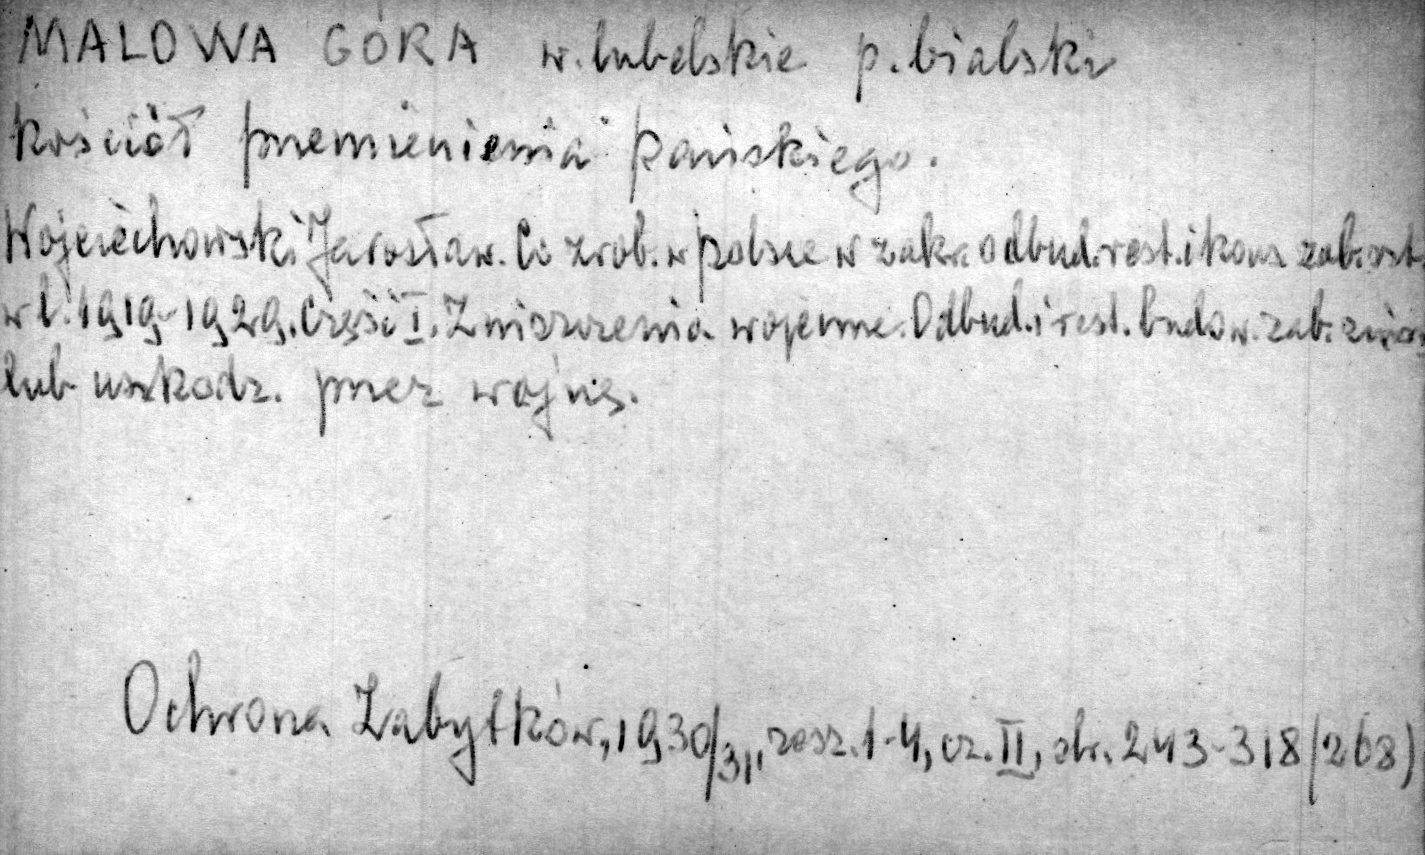 MALOWA GÓRA w. lubelskie p. bialski
Kościół przemienienia Pańskiego.
Wojciechowski Jarosław. Co zrob. w Polsce w zakr. odbud. rest. i kons. zab. szt.
w l. 1919-1929. Część I. Zniszczenia wojenne. Odbud. i rest. budow. zab.
lub uszkodz. przez wojnę.
Ochrona Zabytków, 1930/31, zesz. 1-4, cz. II, str. 243-318 (268)